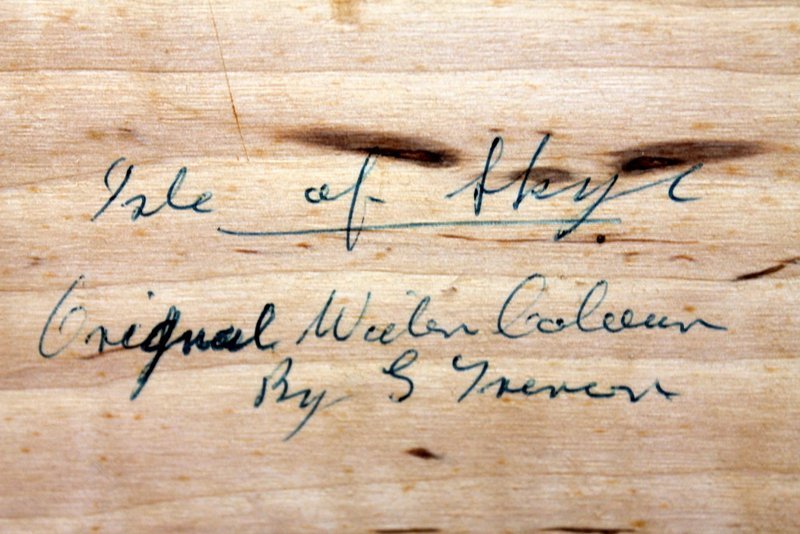 Isle of Skye
Original Water Colour
By G Trevor